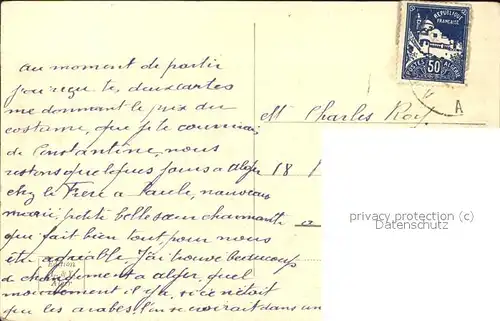 au moment de partir
j'ai reçu tes deux cartes
me donnant le prix du
costume, que je te
de Constantine, nous
restons quelques jours a alger
chez le Frère a Paule, nouveau
marié, petite belle sœur charmante
qui fait bien tout pour nous
être agréable, J'ai trouvé beaucoup
de changement a alger, quel
mouvement il y a, si ce n'était
que les arabes l'on se croirait dans un
RÉPUBLIQUE
FRANÇAISE
POSTES 50 ALGÉRIE
A
Charles Roy
18
privacy protection
Datenschutz
Edition
Alger